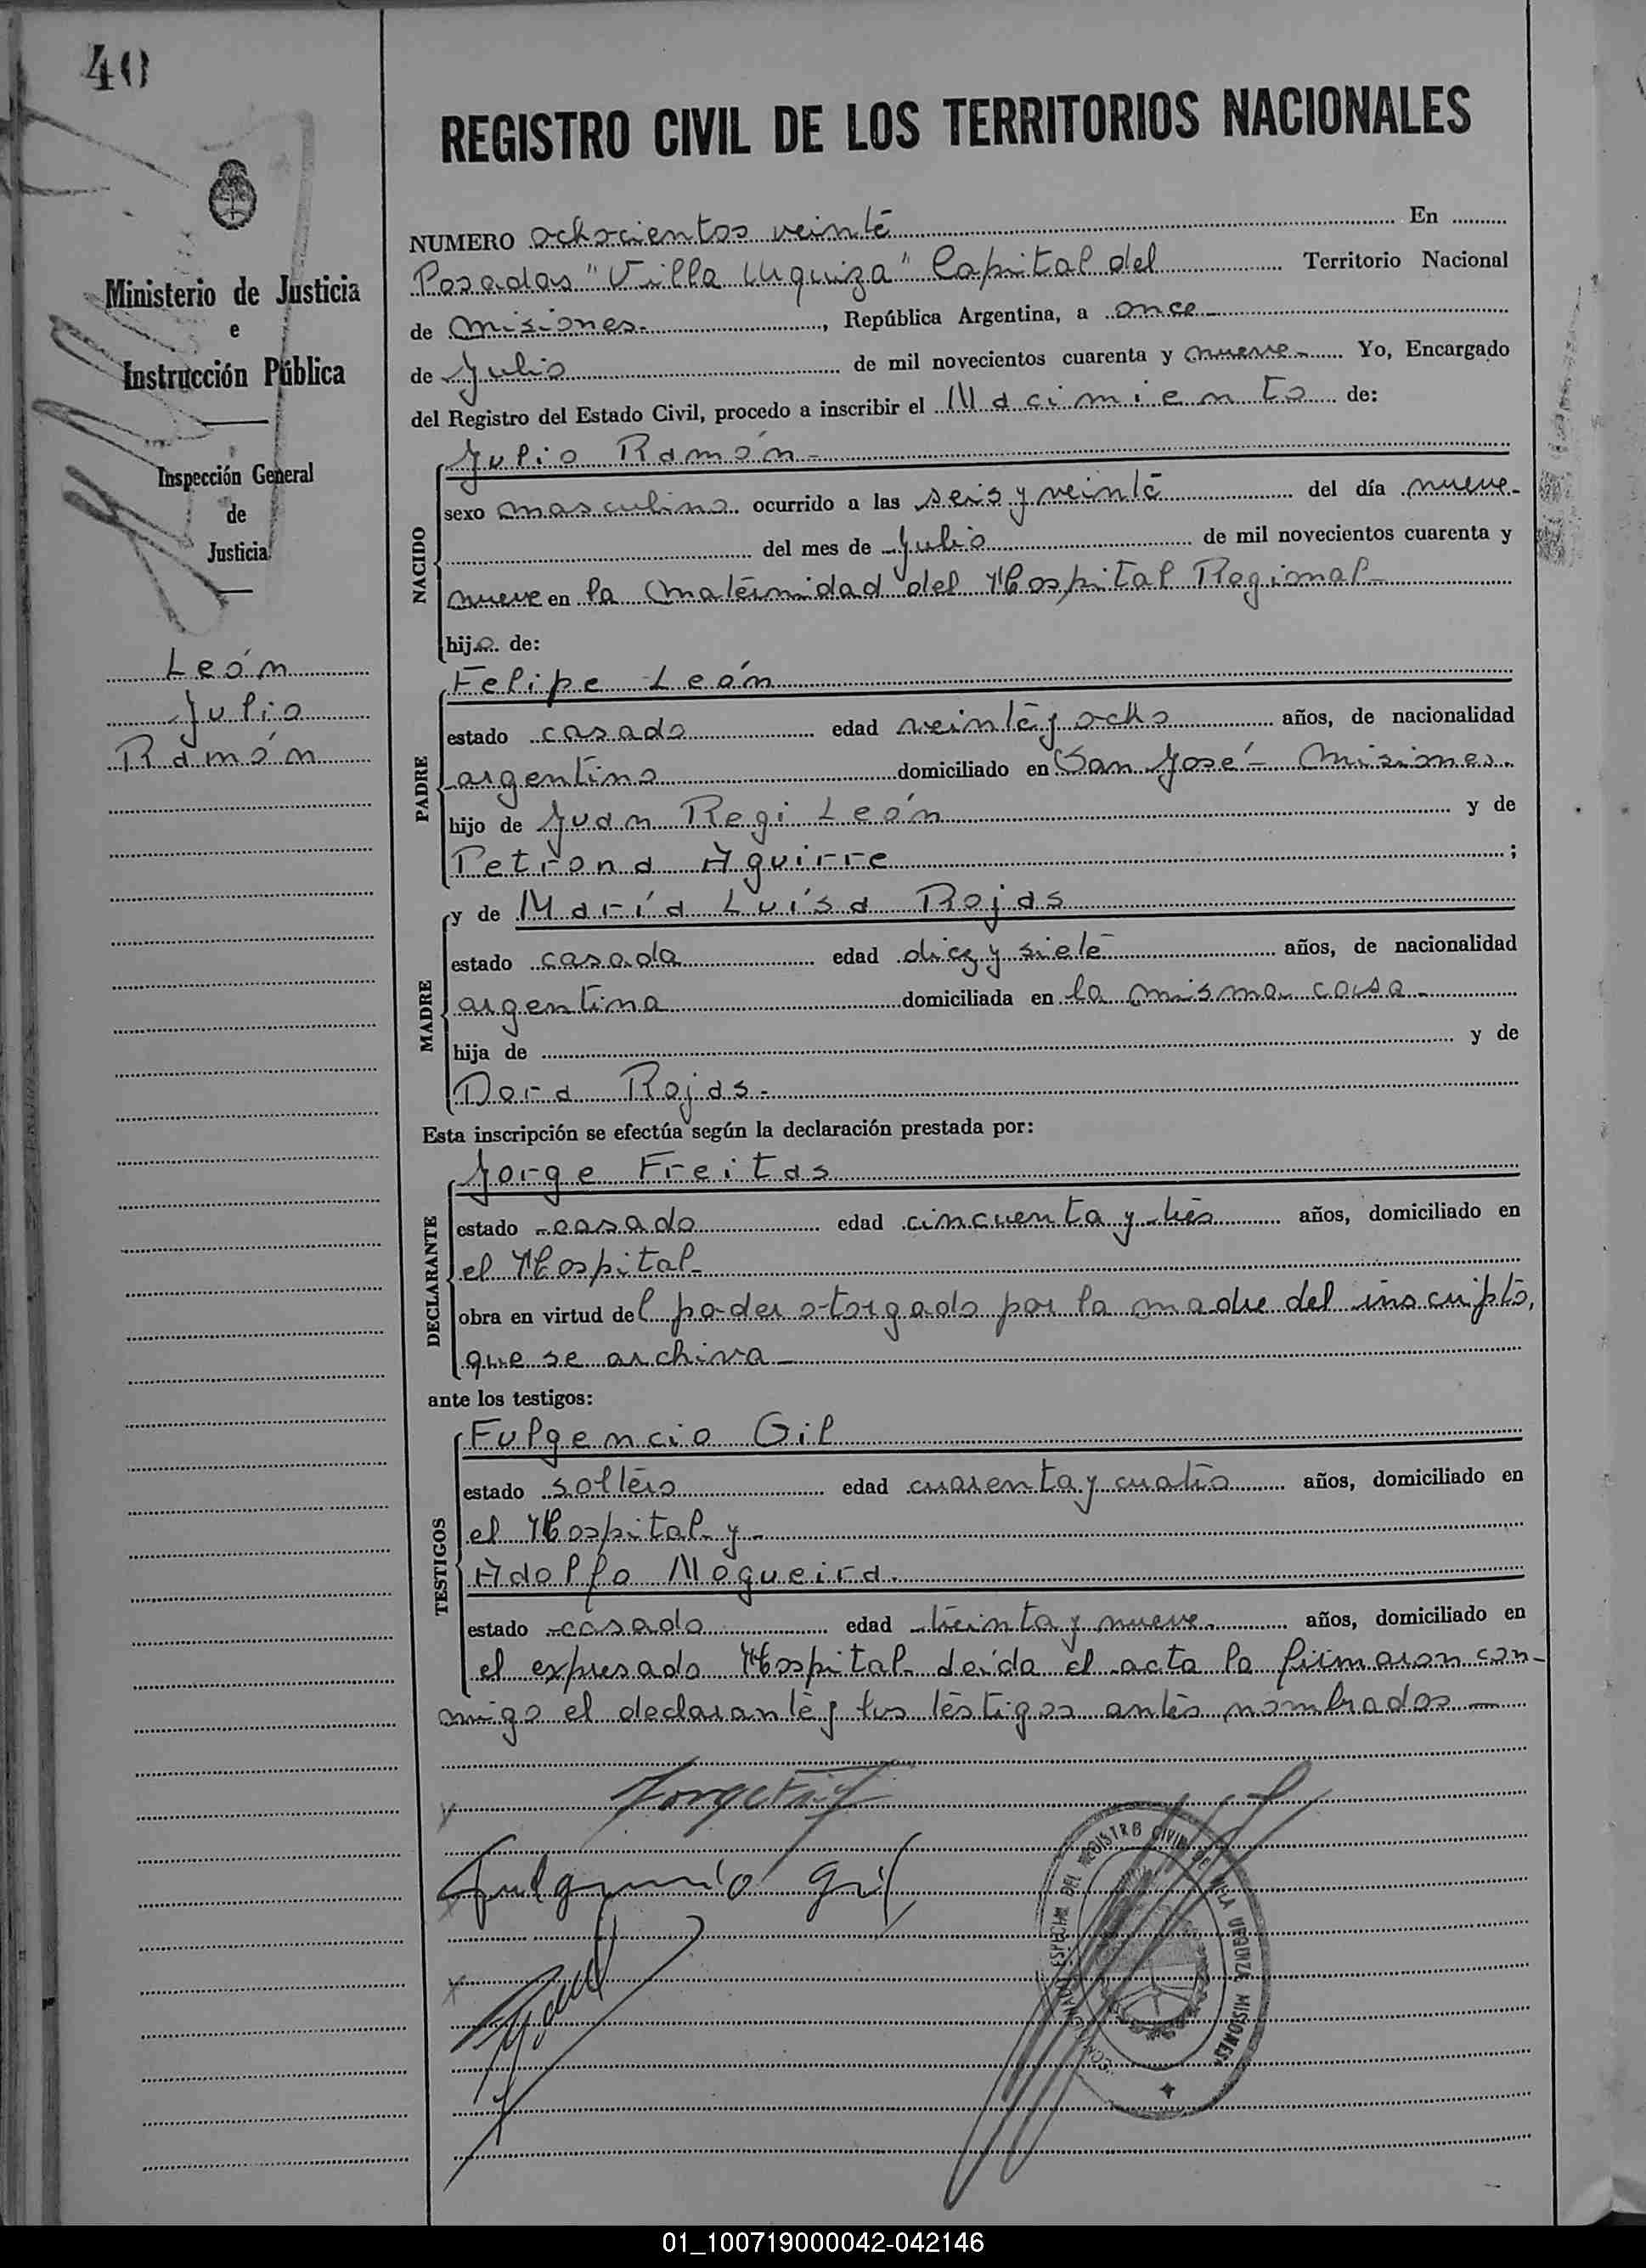 40
Ministerio de Justicia
e
Instrucción Pública
Inspección General
de
Justicia
León
Julio
Ramón
REGISTRO CIVIL DE LOS TERRITORIOS NACIONALES
NUMERO ochocientos veinte En
Posadas "Villa Urquiza" Capital del Territorio Nacional
de Misiones, República Argentina, a once
de Julio de mil novecientos cuarenta y nueve Yo, Encargado
del Registro del Estado Civil, procedo a inscribir el Nacimiento de:
NACIDO
Julio Ramón
sexo masculino ocurrido a las seis y veinte del día nueve
del mes de Julio de mil novecientos cuarenta y
nueve en la Maternidad del Hospital Regional
hijo de:
PADRE
Felipe León
estado casado edad veinte y ocho años, de nacionalidad
argentino domiciliado en San José - Misiones.
hijo de Juan Regi León y de
Petrona Aguirre ;
MADRE
y de María Luísa Rojas
estado casada edad diez y siete años, de nacionalidad
argentina domiciliada en la misma casa
hija de y de
Dora Rojas
Esta inscripción se efectúa según la declaración prestada por:
DECLARANTE
Jorge Freitas
estado casado edad cincuenta y tres años, domiciliado en
el Hospital
obra en virtud del poder otorgado por la madre del inscripto,
que se archiva
ante los testigos:
TESTIGOS
Fulgencio Gil
estado soltero edad cuarenta y cuatro años, domiciliado en
el Hospital y
Adolfo Nogueira.
estado casado edad treinta y nueve años, domiciliado en
el expresado Hospital leída el acta la firmaron con-
migo el declarante y los testigos antes nombrados
Fulgencio Gil
DEL REGISTRO CIVIL DE VILLA URQUIZA MISIONES
01_100719000042-042146